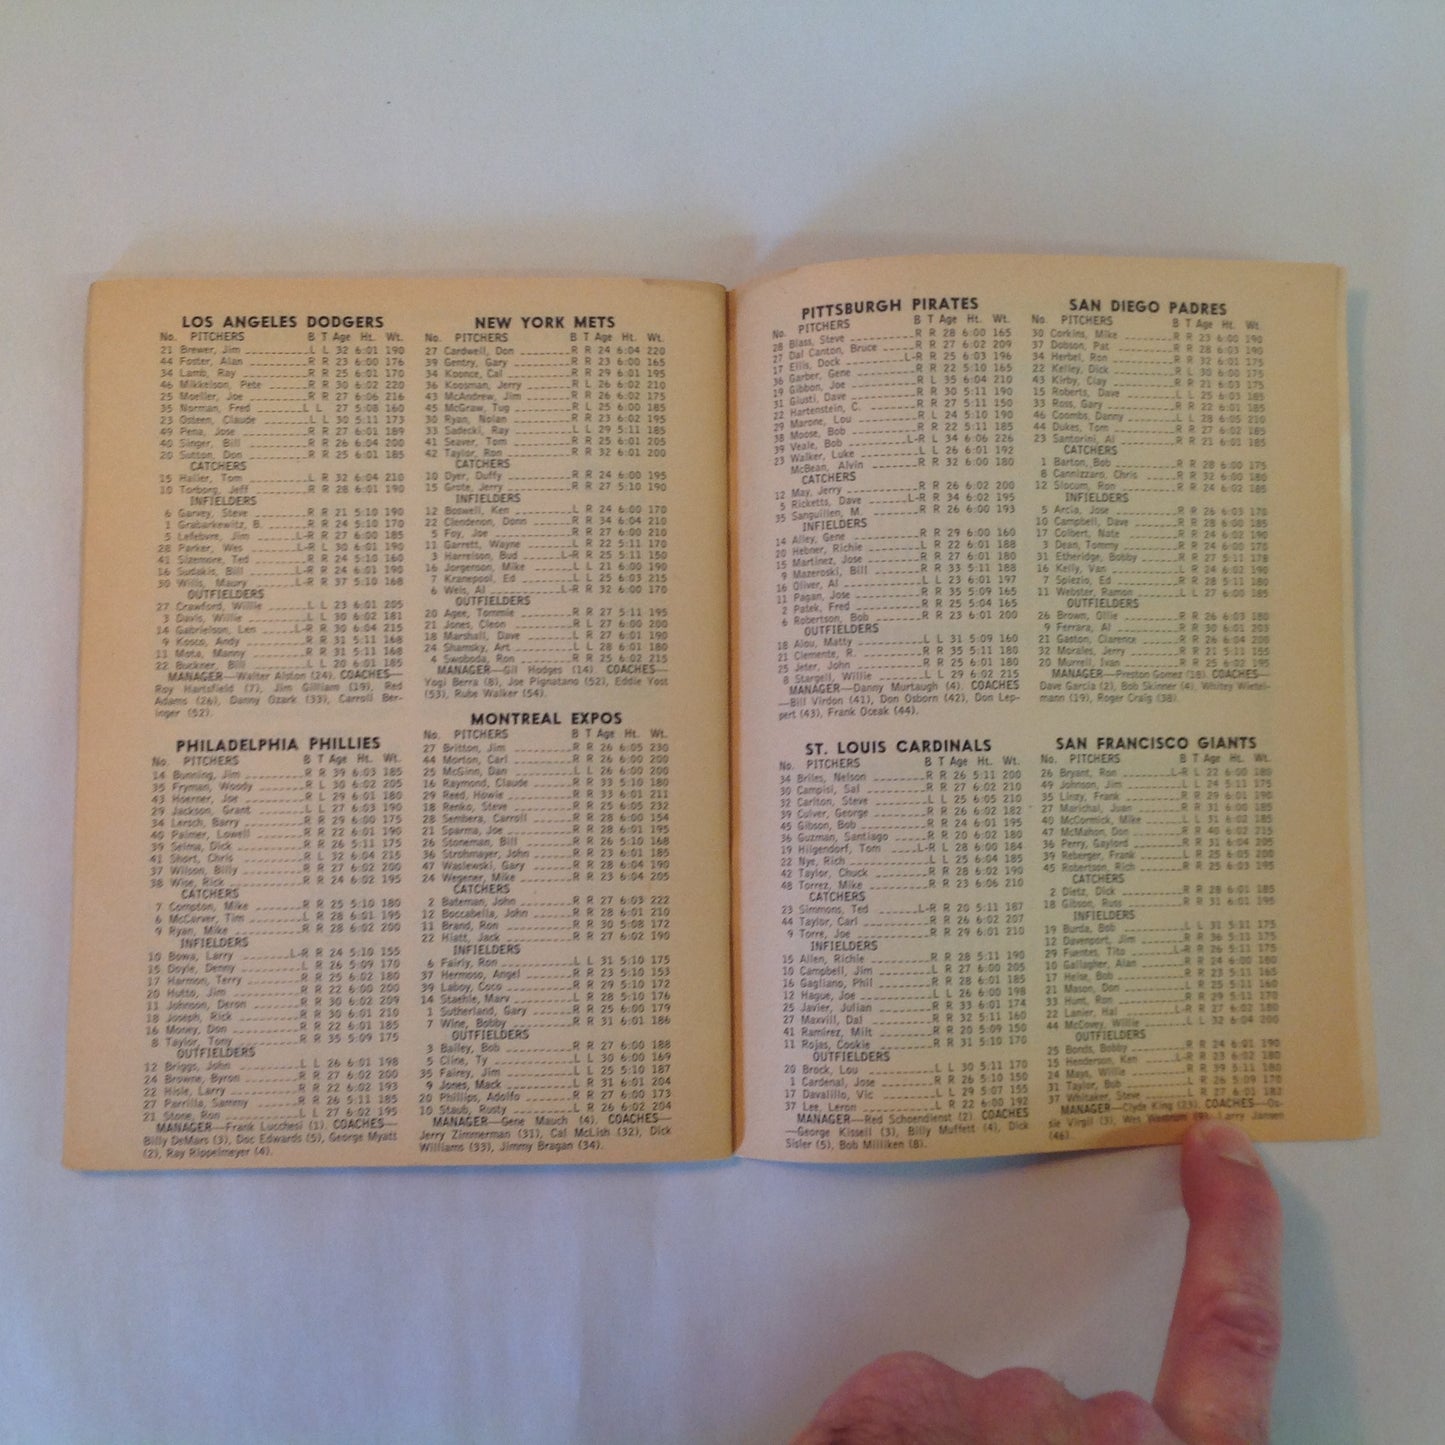 LOS ANGELES DODGERS
No. PITCHERS B T Age Ht. Wt.
21 Brewer, Jim L L 32 6:01 190
44 Foster, Alan R R 23 6:00 176
34 Lamb, Ray R R 25 6:01 170
46 Mikkelson, Pete R R 30 6:02 220
25 Moeller, Joe R R 27 6:06 216
35 Norman, Fred L L 27 5:08 160
23 Osteen, Claude L L 30 5:11 173
49 Pena, Jose R R 27 6:01 189
40 Singer, Bill R R 26 6:04 200
20 Sutton, Don R R 25 6:01 185
CATCHERS
15 Haller, Tom L R 32 6:04 210
10 Torborg, Jeff R R 28 6:01 190
INFIELDERS
6 Garvey, Steve R R 21 5:10 190
1 Grabarkewitz, B. R R 24 5:10 170
5 Lefebvre, Jim L-R R 27 6:00 185
28 Parker, Wes L-R L 30 6:01 190
41 Sizemore, Ted R R 24 5:10 160
16 Sudakis, Bill L-R R 24 6:01 190
30 Wills, Maury L-R R 37 5:10 168
OUTFIELDERS
27 Crawford, Willie L L 23 6:01 205
3 Davis, Willie L L 30 6:02 181
14 Gabrielson, Len L-R R 30 6:04 215
9 Kosco, Andy R R 31 5:11 168
11 Mota, Manny R R 31 5:11 168
22 Buckner, Bill L L 20 6:01 185
MANAGER—Walter Alston (24). COACHES—
Roy Hartsfield (7), Jim Gilliam (19), Red
Adams (26), Danny Ozark (33), Carroll Ber-
inger (52).
PHILADELPHIA PHILLIES
No. PITCHERS B T Age Ht. Wt.
14 Bunning, Jim R R 39 6:03 185
35 Fryman, Woody R L 30 6:02 205
43 Hoerner, Joe R L 29 6:01 180
29 Jackson, Grant L L 27 6:03 190
34 Lersch, Barry R R 29 6:00 175
40 Palmer, Lowell R R 22 6:01 190
39 Selma, Dick R R 26 5:11 175
41 Short, Chris R L 32 6:04 215
37 Wilson, Billy R R 27 6:02 200
38 Wise, Rick R R 24 6:02 195
CATCHERS
7 Compton, Mike R R 25 5:10 180
6 McCarver, Tim L R 28 6:01 195
9 Ryan, Mike R R 28 6:02 200
INFIELDERS
10 Bowa, Larry L-R R 24 5:10 155
15 Doyle, Denny L R 26 5:09 170
17 Harmon, Terry R R 25 6:02 180
20 Hutto, Jim R R 22 6:00 200
11 Johnson, Deron R R 30 6:02 209
18 Joseph, Rick R R 30 6:01 210
16 Money, Don R R 22 6:01 185
8 Taylor, Tony R R 35 5:09 175
OUTFIELDERS
12 Briggs, John L L 26 6:01 198
24 Browne, Byron R R 27 6:02 200
22 Hisle, Larry R R 22 6:02 193
27 Parrilla, Sammy R R 26 5:11 185
21 Stone, Ron L L 27 6:02 195
MANAGER—Frank Lucchesi (1). COACHES—
Billy DeMars (3), Doc Edwards (5), George Myatt
(2), Ray Rippelmeyer (4).
NEW YORK METS
No. PITCHERS B T Age Ht. Wt.
27 Cardwell, Don R R 24 6:04 220
39 Gentry, Gary R R 23 6:00 165
34 Koonce, Cal R R 29 6:01 195
36 Koosman, Jerry R L 26 6:02 210
43 McAndrew, Jim R R 26 6:02 175
45 McGraw, Tug R L 25 6:00 185
30 Ryan, Nolan R R 23 6:02 195
33 Sadecki, Ray L L 29 5:11 185
41 Seaver, Tom R R 25 6:01 205
42 Taylor, Ron R R 32 6:01 200
CATCHERS
10 Dyer, Duffy R R 24 6:00 195
15 Grote, Jerry R R 27 5:10 190
INFIELDERS
12 Boswell, Ken L R 24 6:00 170
22 Clendenon, Donn R R 34 6:04 210
5 Foy, Joe R R 27 6:00 210
11 Garrett, Wayne L R 22 5:11 170
3 Harrelson, Bud L-R R 25 5:11 150
16 Jorgenson, Mike L L 21 6:00 190
7 Kranepool, Ed L L 25 6:03 215
6 Weis, Al L-R R 32 6:00 170
OUTFIELDERS
20 Agee, Tommie R R 27 5:11 195
21 Jones, Cleon R L 27 6:00 200
18 Marshall, Dave L R 27 6:01 190
24 Shamsky, Art L L 28 6:01 180
4 Swoboda, Ron R R 25 6:02 215
MANAGER—Gil Hodges (14). COACHES—
Yogi Berra (8), Joe Pignatano (52), Eddie Yost
(53), Rube Walker (54).
MONTREAL EXPOS
No. PITCHERS B T Age Ht. Wt.
27 Britton, Jim R R 26 6:05 230
44 Morton, Carl R R 26 6:00 200
25 McGinn, Dan L L 26 6:00 200
16 Raymond, Claude R R 33 5:10 180
29 Reed, Howie R R 33 6:01 211
18 Renko, Steve R R 25 6:05 232
28 Sembera, Carroll R R 28 6:00 154
21 Sparma, Joe R R 28 6:01 195
26 Stoneman, Bill R R 26 5:10 168
36 Strohmayer, John R R 23 6:01 185
47 Waslewski, Gary R R 28 6:04 190
24 Wegener, Mike R R 23 6:04 205
CATCHERS
2 Bateman, John R R 27 6:03 222
12 Boccabella, John R R 28 6:01 210
11 Brand, Ron R R 30 5:08 172
22 Hiatt, Jack R R 27 6:02 190
INFIELDERS
6 Fairly, Ron L L 31 5:10 175
37 Hermoso, Angel R R 23 5:10 153
39 Laboy, Coco R R 29 5:10 172
14 Staehle, Marv L R 28 5:10 176
1 Sutherland, Gary R R 25 6:00 179
7 Wine, Bobby R R 31 6:01 186
OUTFIELDERS
3 Bailey, Bob R R 27 6:00 188
5 Cline, Ty L L 30 6:00 169
35 Fairey, Jim L L 25 5:10 187
9 Jones, Mack L R 31 6:01 204
20 Phillips, Adolfo R R 27 6:00 173
10 Staub, Rusty L R 26 6:02 204
MANAGER—Gene Mauch (4). COACHES—
Jerry Zimmerman (31), Cal McLish (32), Dick
Williams (33), Jimmy Bragan (34).
PITTSBURGH PIRATES
No. PITCHERS B T Age Ht. Wt.
28 Blass, Steve R R 28 6:00 165
27 Dal Canton, Bruce R R 27 6:02 209
17 Ellis, Dock L-R R 25 6:03 196
36 Garber, Gene R R 22 5:10 165
19 Gibbon, Joe R L 35 6:04 210
31 Giusti, Dave R R 30 5:11 190
22 Hartenstein, C. R R 27 5:11 150
29 Marone, Lou R L 24 5:10 190
38 Moose, Bob R R 22 5:11 185
39 Veale, Bob L-R L 34 6:06 226
23 Walker, Luke L L 26 6:01 192
McBean, Alvin R R 32 6:00 180
CATCHERS
12 May, Jerry R R 26 6:02 200
5 Ricketts, Dave L-R R 34 6:02 195
35 Sanguillen, M. R R 26 6:00 193
INFIELDERS
14 Alley, Gene R R 29 6:00 160
20 Hebner, Richie L R 22 6:01 188
15 Martinez, Jose R R 27 6:01 180
9 Mazeroski, Bill R R 33 5:11 188
16 Oliver, Al L L 23 6:01 197
11 Pagan, Jose R R 35 5:09 165
2 Patek, Fred R R 25 5:04 165
6 Robertson, Bob R R 23 6:01 200
OUTFIELDERS
18 Alou, Matty L L 31 5:09 160
21 Clemente, R. R R 35 5:11 180
25 Jeter, John R R 25 6:01 180
8 Stargell, Willie L L 29 6:02 215
MANAGER—Danny Murtaugh (4). COACHES
—Bill Virdon (41), Don Osborn (42), Don Lep-
pert (43), Frank Oceak (44).
ST. LOUIS CARDINALS
No. PITCHERS B T Age Ht. Wt.
34 Briles, Nelson R R 26 5:11 200
30 Campisi, Sal R R 27 6:02 210
32 Carlton, Steve L L 25 6:05 210
39 Culver, George R R 26 6:02 182
45 Gibson, Bob R R 24 6:01 195
36 Guzman, Santiago R R 20 6:02 180
19 Hilgendorf, Tom L-R L 28 6:00 184
22 Nye, Rich L L 25 6:04 185
42 Taylor, Chuck R R 28 6:02 190
48 Torrez, Mike R R 23 6:06 210
CATCHERS
23 Simmons, Ted L-R R 20 5:11 187
44 Taylor, Carl R R 26 6:02 207
9 Torre, Joe R R 29 6:01 210
INFIELDERS
15 Allen, Richie R R 28 5:11 190
10 Campbell, Jim L R 27 6:00 205
16 Gagliano, Phil R R 28 6:01 185
12 Hague, Joe L L 26 6:00 198
25 Javier, Julian R R 33 6:01 174
27 Maxvill, Dal R R 32 5:11 160
41 Ramirez, Milt R R 20 5:09 150
11 Rojas, Cookie R R 31 5:10 170
OUTFIELDERS
20 Brock, Lou L L 30 5:11 170
1 Cardenal, Jose R R 26 5:10 150
17 Davalillo, Vic L L 29 5:07 155
37 Lee, Leron L R 22 6:00 192
MANAGER—Red Schoendienst (2). COACHES
—George Kissell (3), Billy Muffett (4), Dick
Sisler (5), Bob Milliken (8).
SAN DIEGO PADRES
No. PITCHERS B T Age Ht. Wt.
30 Corkins, Mike R R 23 6:00 190
37 Dobson, Pat R R 28 6:03 190
34 Herbel, Ron R R 32 6:01 175
22 Kelley, Dick R L 30 6:00 175
43 Kirby, Clay R R 21 6:03 175
15 Roberts, Dave L L 25 6:03 185
33 Ross, Gary R R 22 6:01 185
46 Coombs, Danny L 28 6:05 210
44 Dukes, Tom R R 27 6:02 185
23 Santorini, Al R R 21 6:01 185
CATCHERS
1 Barton, Bob R R 28 6:00 175
8 Cannizzaro, Chris R R 32 6:00 180
12 Slocum, Ron R R 24 6:02 185
INFIELDERS
5 Arcia, Jose R R 26 6:03 170
10 Campbell, Dave R R 28 6:00 185
17 Colbert, Nate R R 24 6:02 190
3 Dean, Tommy R R 24 6:00 175
31 Etheridge, Bobby R R 27 5:11 178
16 Kelly, Van L R 24 6:02 190
7 Spiezio, Ed R R 28 5:11 180
11 Webster, Ramon L L 27 6:00 185
OUTFIELDERS
26 Brown, Ollie R R 26 6:03 180
9 Ferrara, Al R R 30 6:01 203
21 Gaston, Clarence R R 26 6:04 200
32 Morales, Jerry R R 21 5:11 155
20 Murrell, Ivan R R 25 6:02 195
MANAGER—Preston Gomez (18). COACHES—
Dave Garcia (2), Bob Skinner (4), Whitey Wietel-
mann (19), Roger Craig (38).
SAN FRANCISCO GIANTS
No. PITCHERS B T Age Ht. Wt.
26 Bryant, Ron L-R L 22 6:00 180
49 Johnson, Jim L L 24 5:11 175
35 Linzy, Frank R R 29 6:01 190
27 Marichal, Juan R R 31 6:00 185
40 McCormick, Mike L L 31 6:02 185
47 McMahon, Don R R 40 6:02 215
36 Perry, Gaylord R R 31 6:04 205
39 Reberger, Frank L R 25 6:05 200
45 Robertson, Rich R R 25 6:03 195
CATCHERS
2 Dietz, Dick R R 28 6:01 185
18 Gibson, Russ R R 31 6:01 195
INFIELDERS
19 Burda, Bob L L 31 5:11 175
12 Davenport, Jim R R 36 5:11 175
29 Fuentes, Tito L-R R 26 5:11 175
10 Gallagher, Alan R R 24 6:00 180
17 Heise, Bob R R 23 5:11 165
21 Mason, Don L R 25 5:11 160
33 Hunt, Ron R R 29 5:11 170
22 Lanier, Hal L-R R 27 6:02 180
44 McCovey, Willie L L 32 6:04 200
OUTFIELDERS
25 Bonds, Bobby R R 24 6:01 190
15 Henderson, Ken L-R R 23 6:02 180
24 Mays, Willie R R 39 5:11 180
31 Taylor, Bob L R 26 5:09 170
37 Whitaker, Steve L R 27 6:03 182
MANAGER—Clyde King (23). COACHES—Os-
sie Virgil (3), Wes Westrum (9), Larry Jansen
(46).